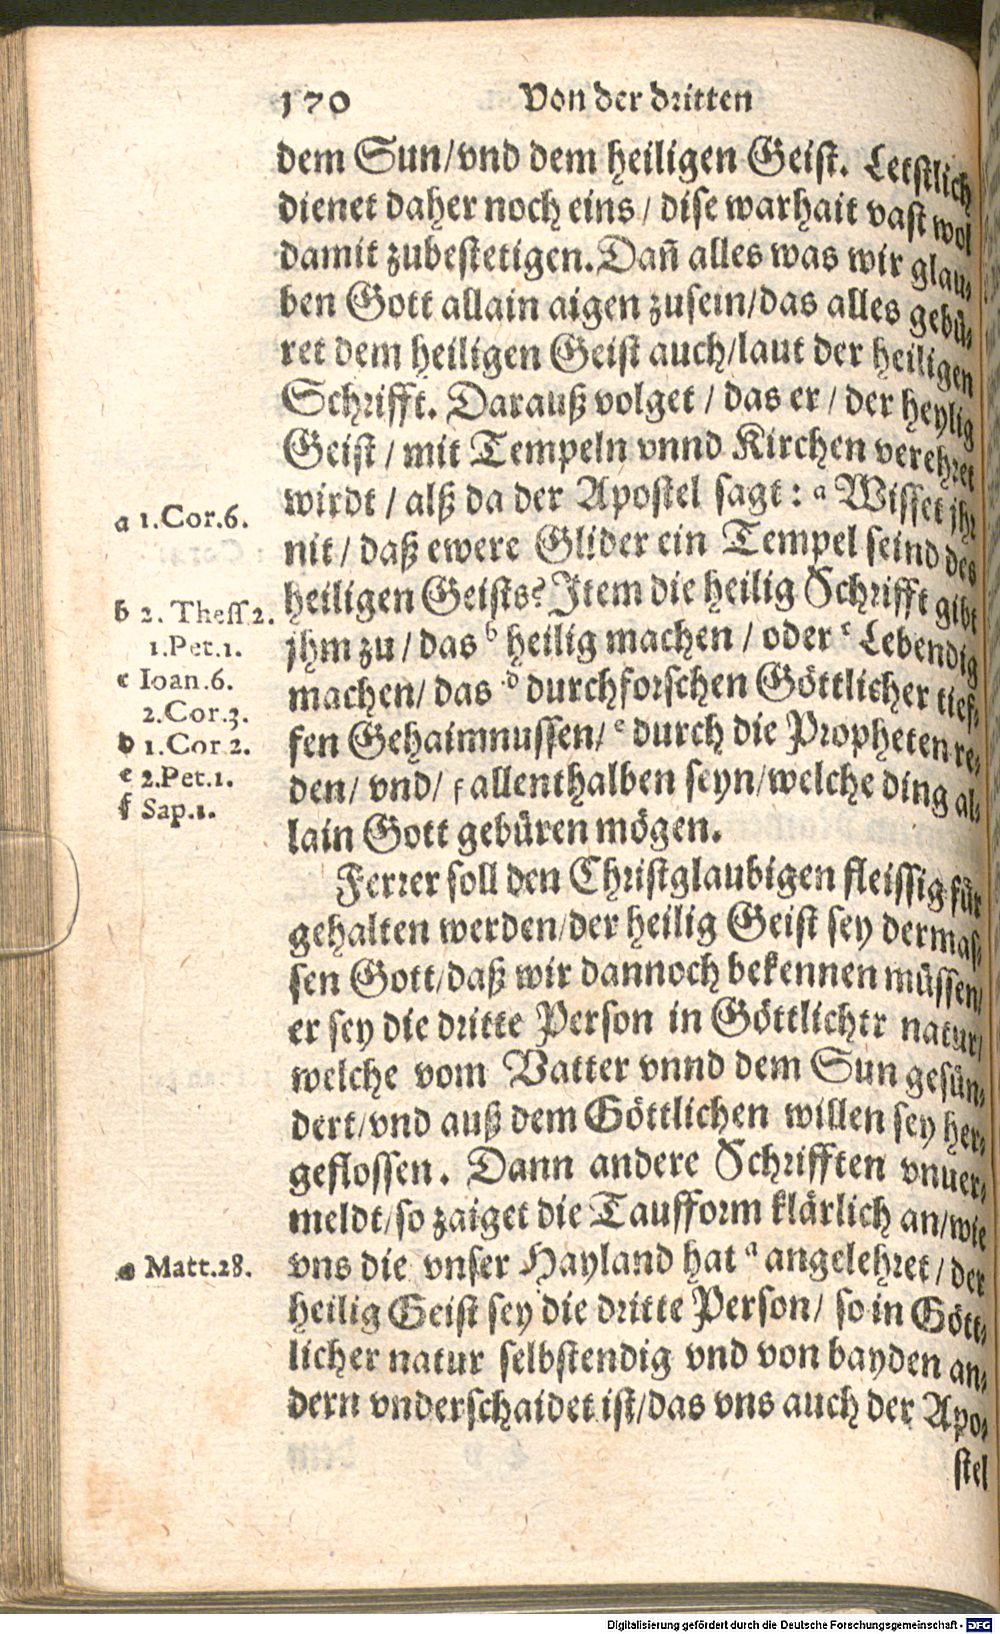 170 Von der dritten
dem Sun/vnd dem heiligen Geist. Letstlich
dienet daher noch eins / dise warhait vast wol
damit zubestetigen. Dañ alles was wir glau-
ben Gott allain aigen zusein/das alles gebü-
ret dem heiligen Geist auch/laut der heiligen
Schrifft. Darauß volget / das er / der heylig
Geist / mit Tempeln vnnd Kirchen verehret
wirdt / alß da der Apostel sagt : a Wisset jhr
nit / daß ewere Glider ein Tempel seind des
heiligen Geists? Item die heilig Schrifft gibt
jhm zu / das b heilig machen / oder c Lebendig
machen/ das d durchforschen Göttlicher tief-
fen Gehaimnussen/ e durch die Propheten re-
den/ vnd/ f allenthalben seyn/welche ding al-
lain Gott gebüren mögen.
Ferrer soll den Christglaubigen fleissig für
gehalten werden/der heilig Geist sey dermas-
sen Gott/daß wir dannoch bekennen müssen/
er sey die dritte Person in Göttlichtr natur/
welche vom Vatter vnnd dem Sun gesün-
dert/vnd auß dem Göttlichen willen sey her-
geflossen. Dann andere Schrifften vnuer-
meldt/so zaiget die Taufform klärlich an/wie
vns die vnser Hayland hat a angelehret / der
heilig Geist sey die dritte Person/ so in Gött-
licher natur selbstendig vnd von bayden an-
dern vnderschaidet ist/das vns auch der Apo-
stel
a 1.Cor.6.
b 2. Thess.2.
1.Pet.1.
c Ioan.6.
2.Cor.3.
d 1.Cor.2.
e 2.Pet.1.
f Sap.1.
a Matt.28.
Digitalisierung gefördert durch die Deutsche Forschungsgemeinschaft - DFG